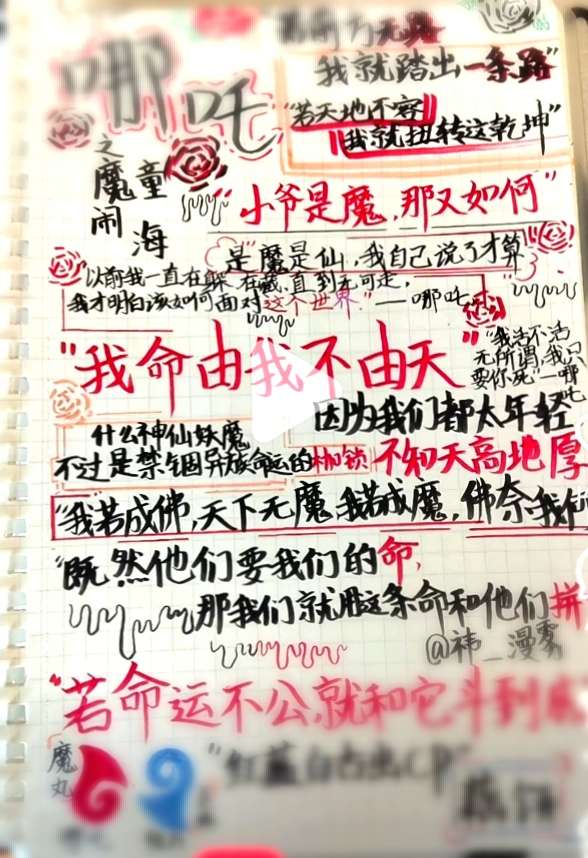 哪吒
之魔童
闹海
我就踏出一条路"
"若天地不容
我就扭转这乾坤"
"小爷是魔,那又如何"
是魔是仙,我自己说了才算
"以前我一直在躲,在藏,直到无可走,
我才明白该如何面对这个世界."——哪吒
"我命由我不由天"
"我活不活
无所谓,我只
要你死"—哪吒
因为我们都太年轻
不知天高地厚
什么神仙妖魔
不过是禁锢异族命运的枷锁
"我若成佛,天下无魔,我若成魔,佛奈我何
"既然他们要我们的命,
那我们就用这条命和他们拼
@祎_漫雾
"若命运不公,就和它斗到底
魔丸
"红蓝自古出CP"